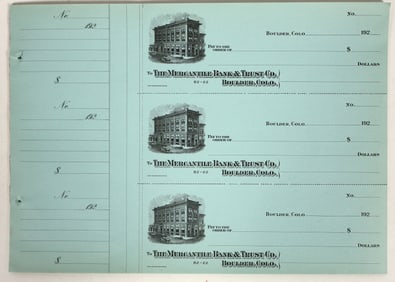 No.
192
$
No.
Boulder, Colo. 192
Pay to the
order of $
Dollars
To The Mercantile Bank & Trust Co.
Boulder, Colo.
No.
192
$
No.
Boulder, Colo. 192
Pay to the
order of $
Dollars
To The Mercantile Bank & Trust Co.
Boulder, Colo.
No.
192
$
No.
Boulder, Colo. 192
Pay to the
order of $
Dollars
To The Mercantile Bank & Trust Co.
Boulder, Colo.